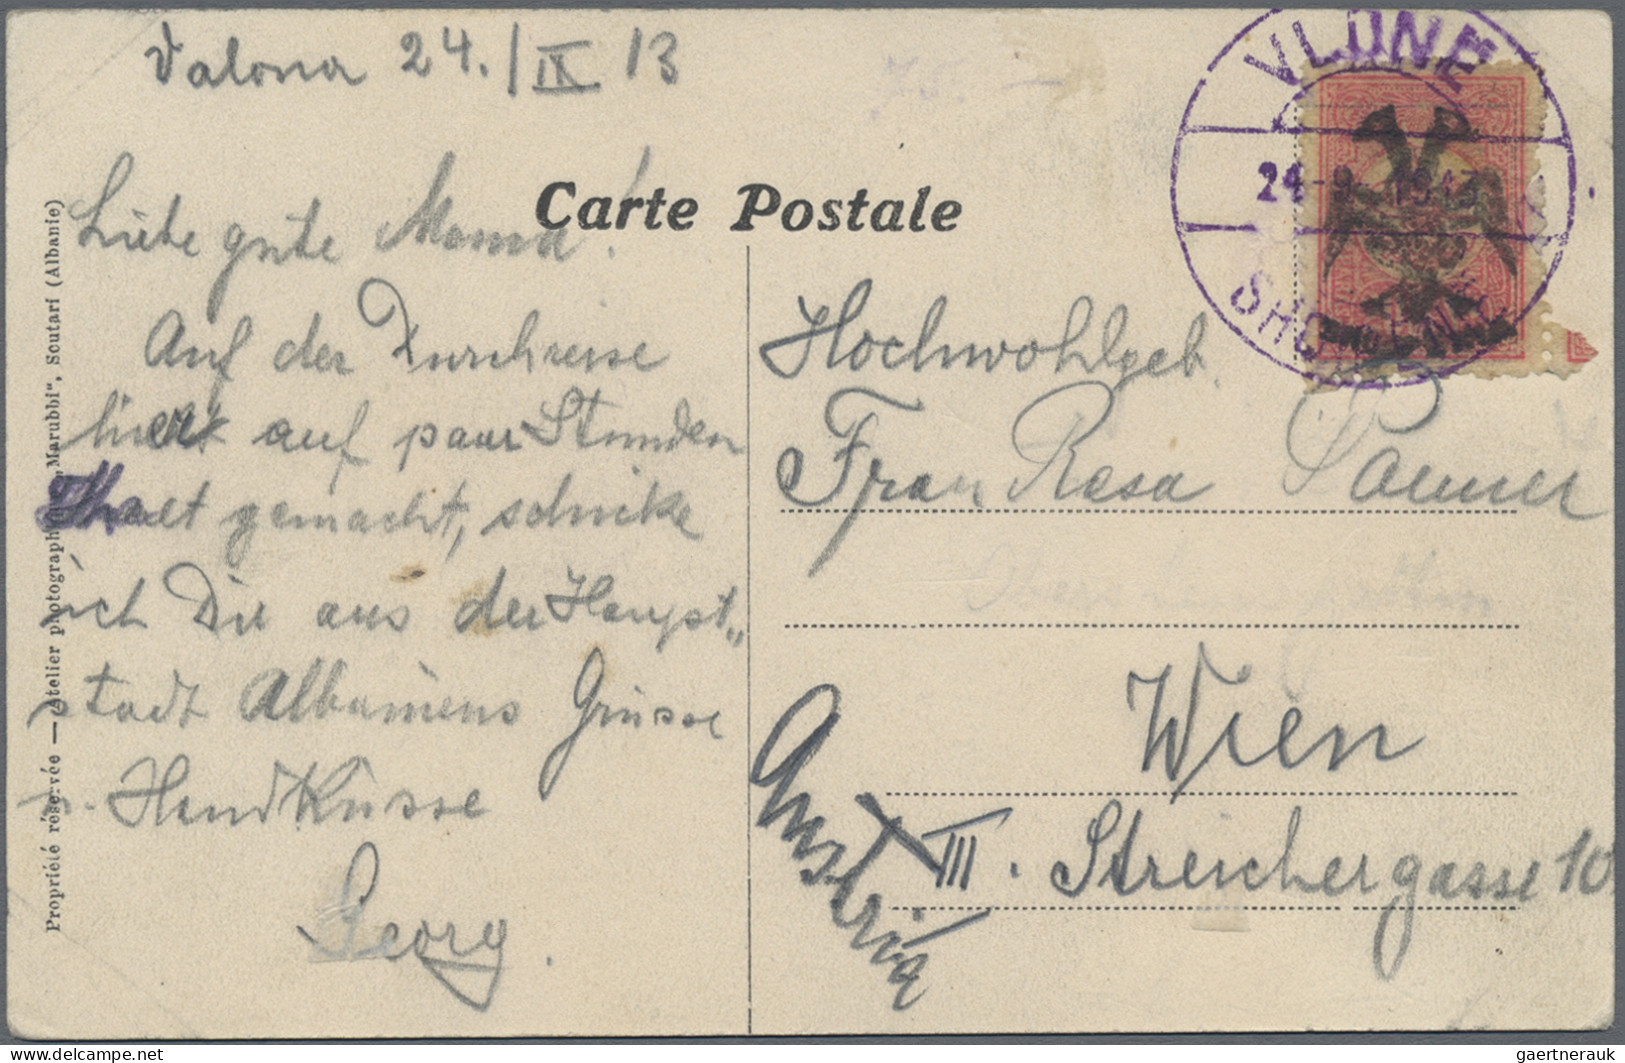 Valona 24./IX 13
VLONË
24-9-1913
Carte Postale
Liebe gute Mama!
Auf der Durchreise
hier auf paar Stunden
Halt gemacht, schicke
ich Dir aus der Haupt„
stadt Albaniens Grüsse
u. Handküsse
Georg.
Hochwohlgeb.
Frau Rosa
Wien
III. Streichergasse 10
Austria
Propriété réservée — Atelier photographique „Marubbi“, Scutari (Albanie)
gaertnerauk